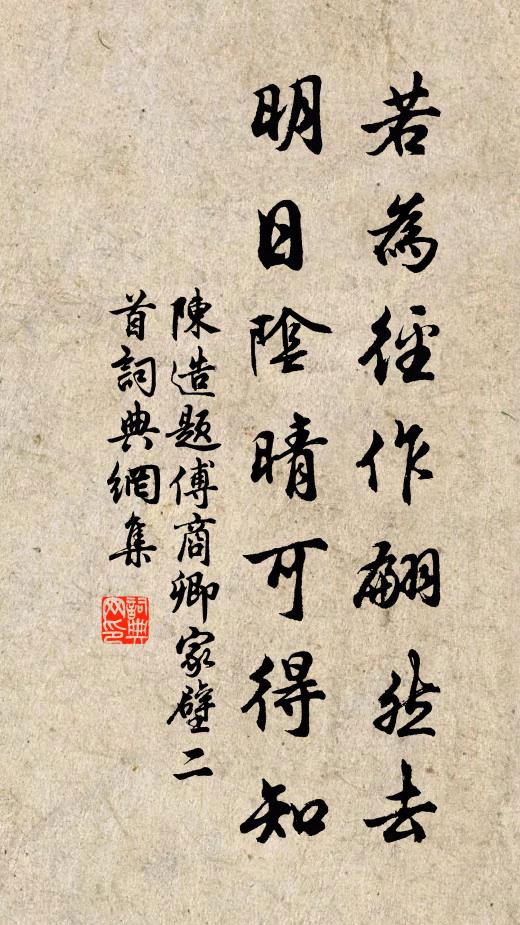 若為徑作翩然去
明日陰晴可得知
陳造題傅商卿家壁二
首詞典網集
詞典
网印